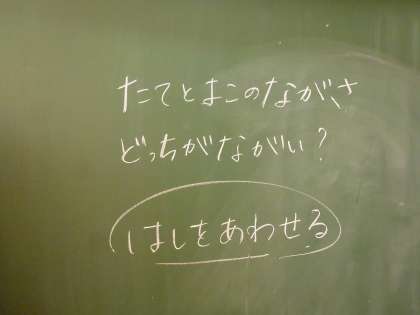 たてとよこのながさ
どっちがながい?
はしをあわせる